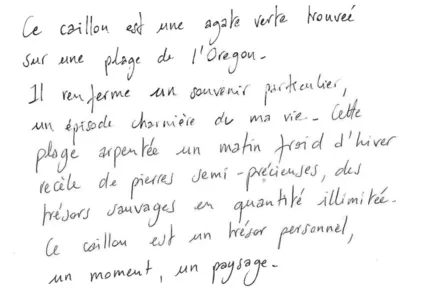 Ce caillou est une agate verte trouvée
sur une plage de l'Oregon.
Il renferme un souvenir particulier,
un épisode charnière du ma vie. Cette
plage arpentée un matin froid d'hiver
recèle de pierres semi-précieuses, des
trésors sauvages en quantité illimitée.
Ce caillou est un trésor personnel,
un moment, un paysage.